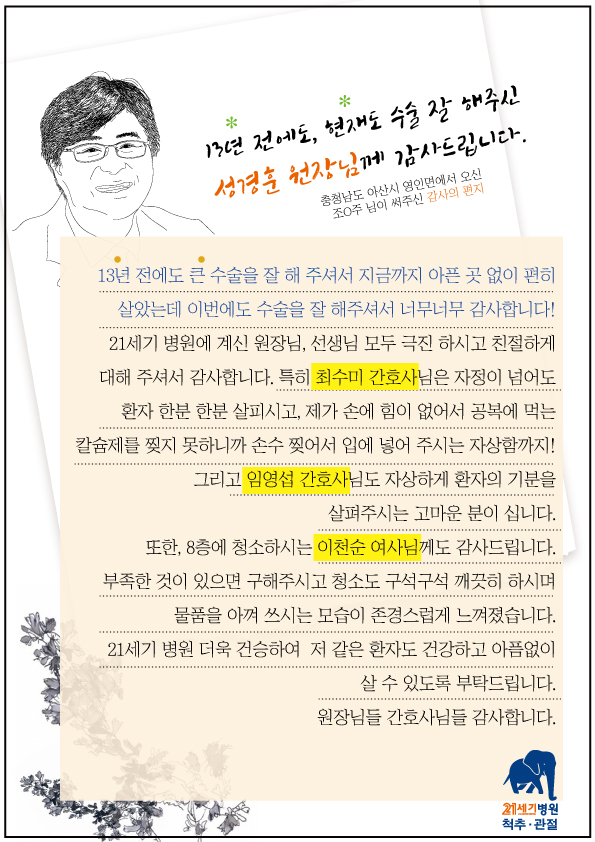 13년 전에도, 현재도 수술 잘 해주신
성경훈 원장님께 감사드립니다.
충청남도 아산시 영인면에서 오신
조O주 님이 써주신 감사의 편지
13년 전에도 큰 수술을 잘 해 주셔서 지금까지 아픈 곳 없이 편히
살았는데 이번에도 수술을 잘 해주셔서 너무너무 감사합니다!
21세기 병원에 계신 원장님, 선생님 모두 극진 하시고 친절하게
대해 주셔서 감사합니다. 특히 최수미 간호사님은 자정이 넘어도
환자 한분 한분 살피시고, 제가 손에 힘이 없어서 공복에 먹는
칼슘제를 찢지 못하니까 손수 찢어서 입에 넣어 주시는 자상함까지!
그리고 임영섭 간호사님도 자상하게 환자의 기분을
살펴주시는 고마운 분이 십니다.
또한, 8층에 청소하시는 이천순 여사님께도 감사드립니다.
부족한 것이 있으면 구해주시고 청소도 구석구석 깨끗히 하시며
물품을 아껴 쓰시는 모습이 존경스럽게 느껴졌습니다.
21세기 병원 더욱 건승하여 저 같은 환자도 건강하고 아픔없이
살 수 있도록 부탁드립니다.
원장님들 간호사님들 감사합니다.
21세기병원
척추·관절